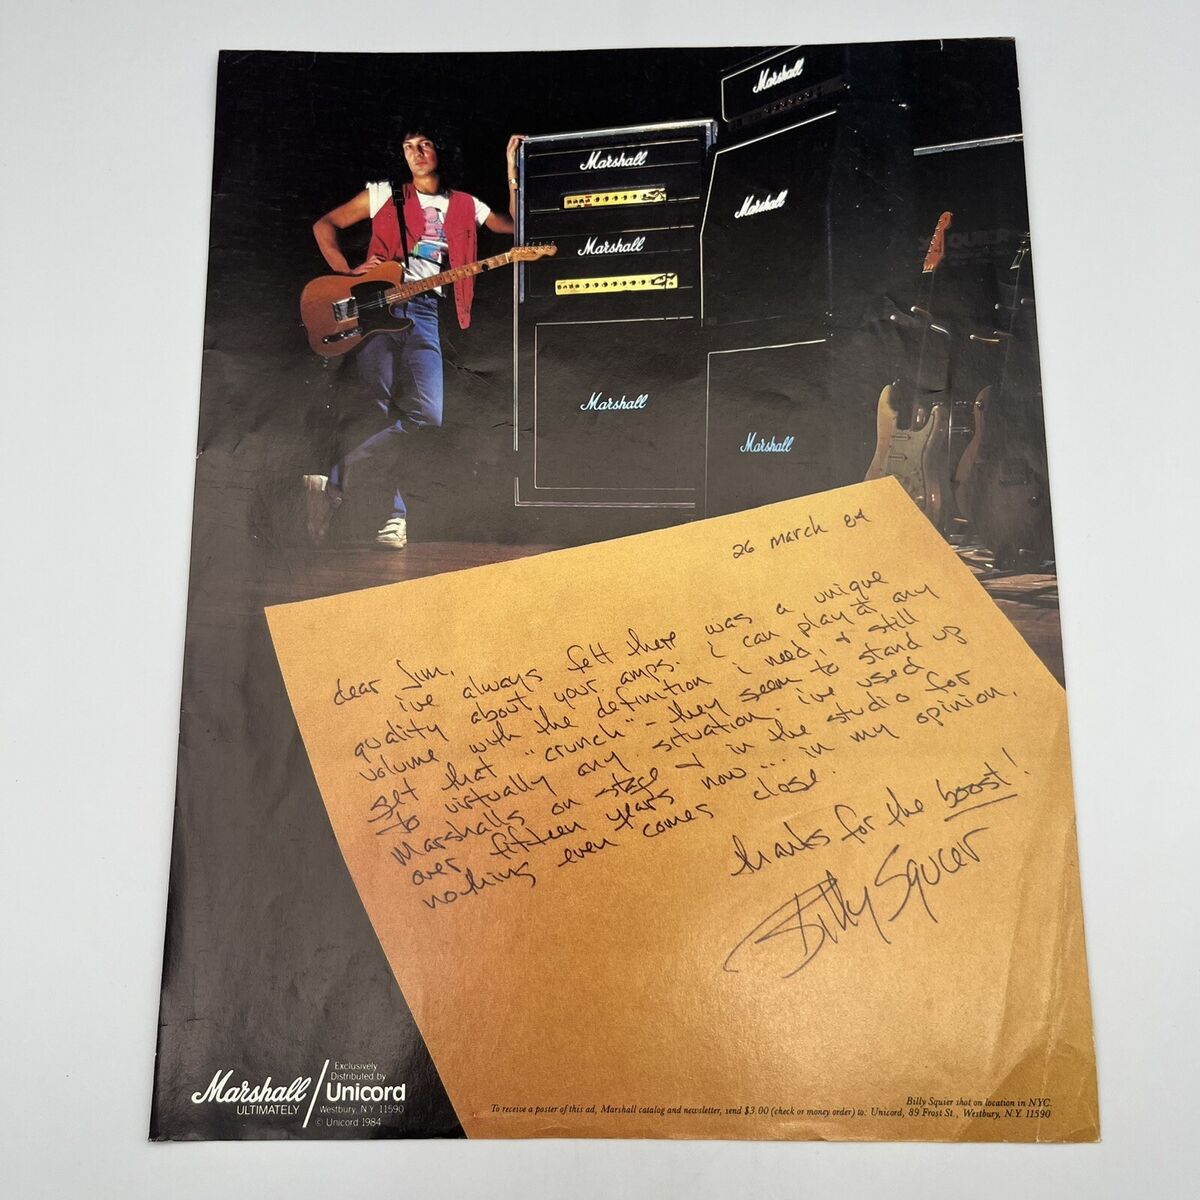 Marshall
Marshall
Marshall
Marshall
Marshall
Marshall
SQUIER
26 March 84
dear Jim,
i've always felt there was a unique
quality about your amps. i can play at any
volume with the definition i need, & still
get that "crunch" - they seem to stand up
to virtually any situation. i've used
Marshalls on stage & in the studio for
over fifteen years now... in my opinion,
nothing even comes close.
thanks for the boost!
Billy Squier
Marshall
ULTIMATELY
Exclusively
Distributed by
Unicord
Westbury, N.Y. 11590
© Unicord 1984
Billy Squier shot on location in NYC.
To receive a poster of this ad, Marshall catalog and newsletter, send $3.00 (check or money order) to: Unicord, 89 Frost St., Westbury, N.Y. 11590